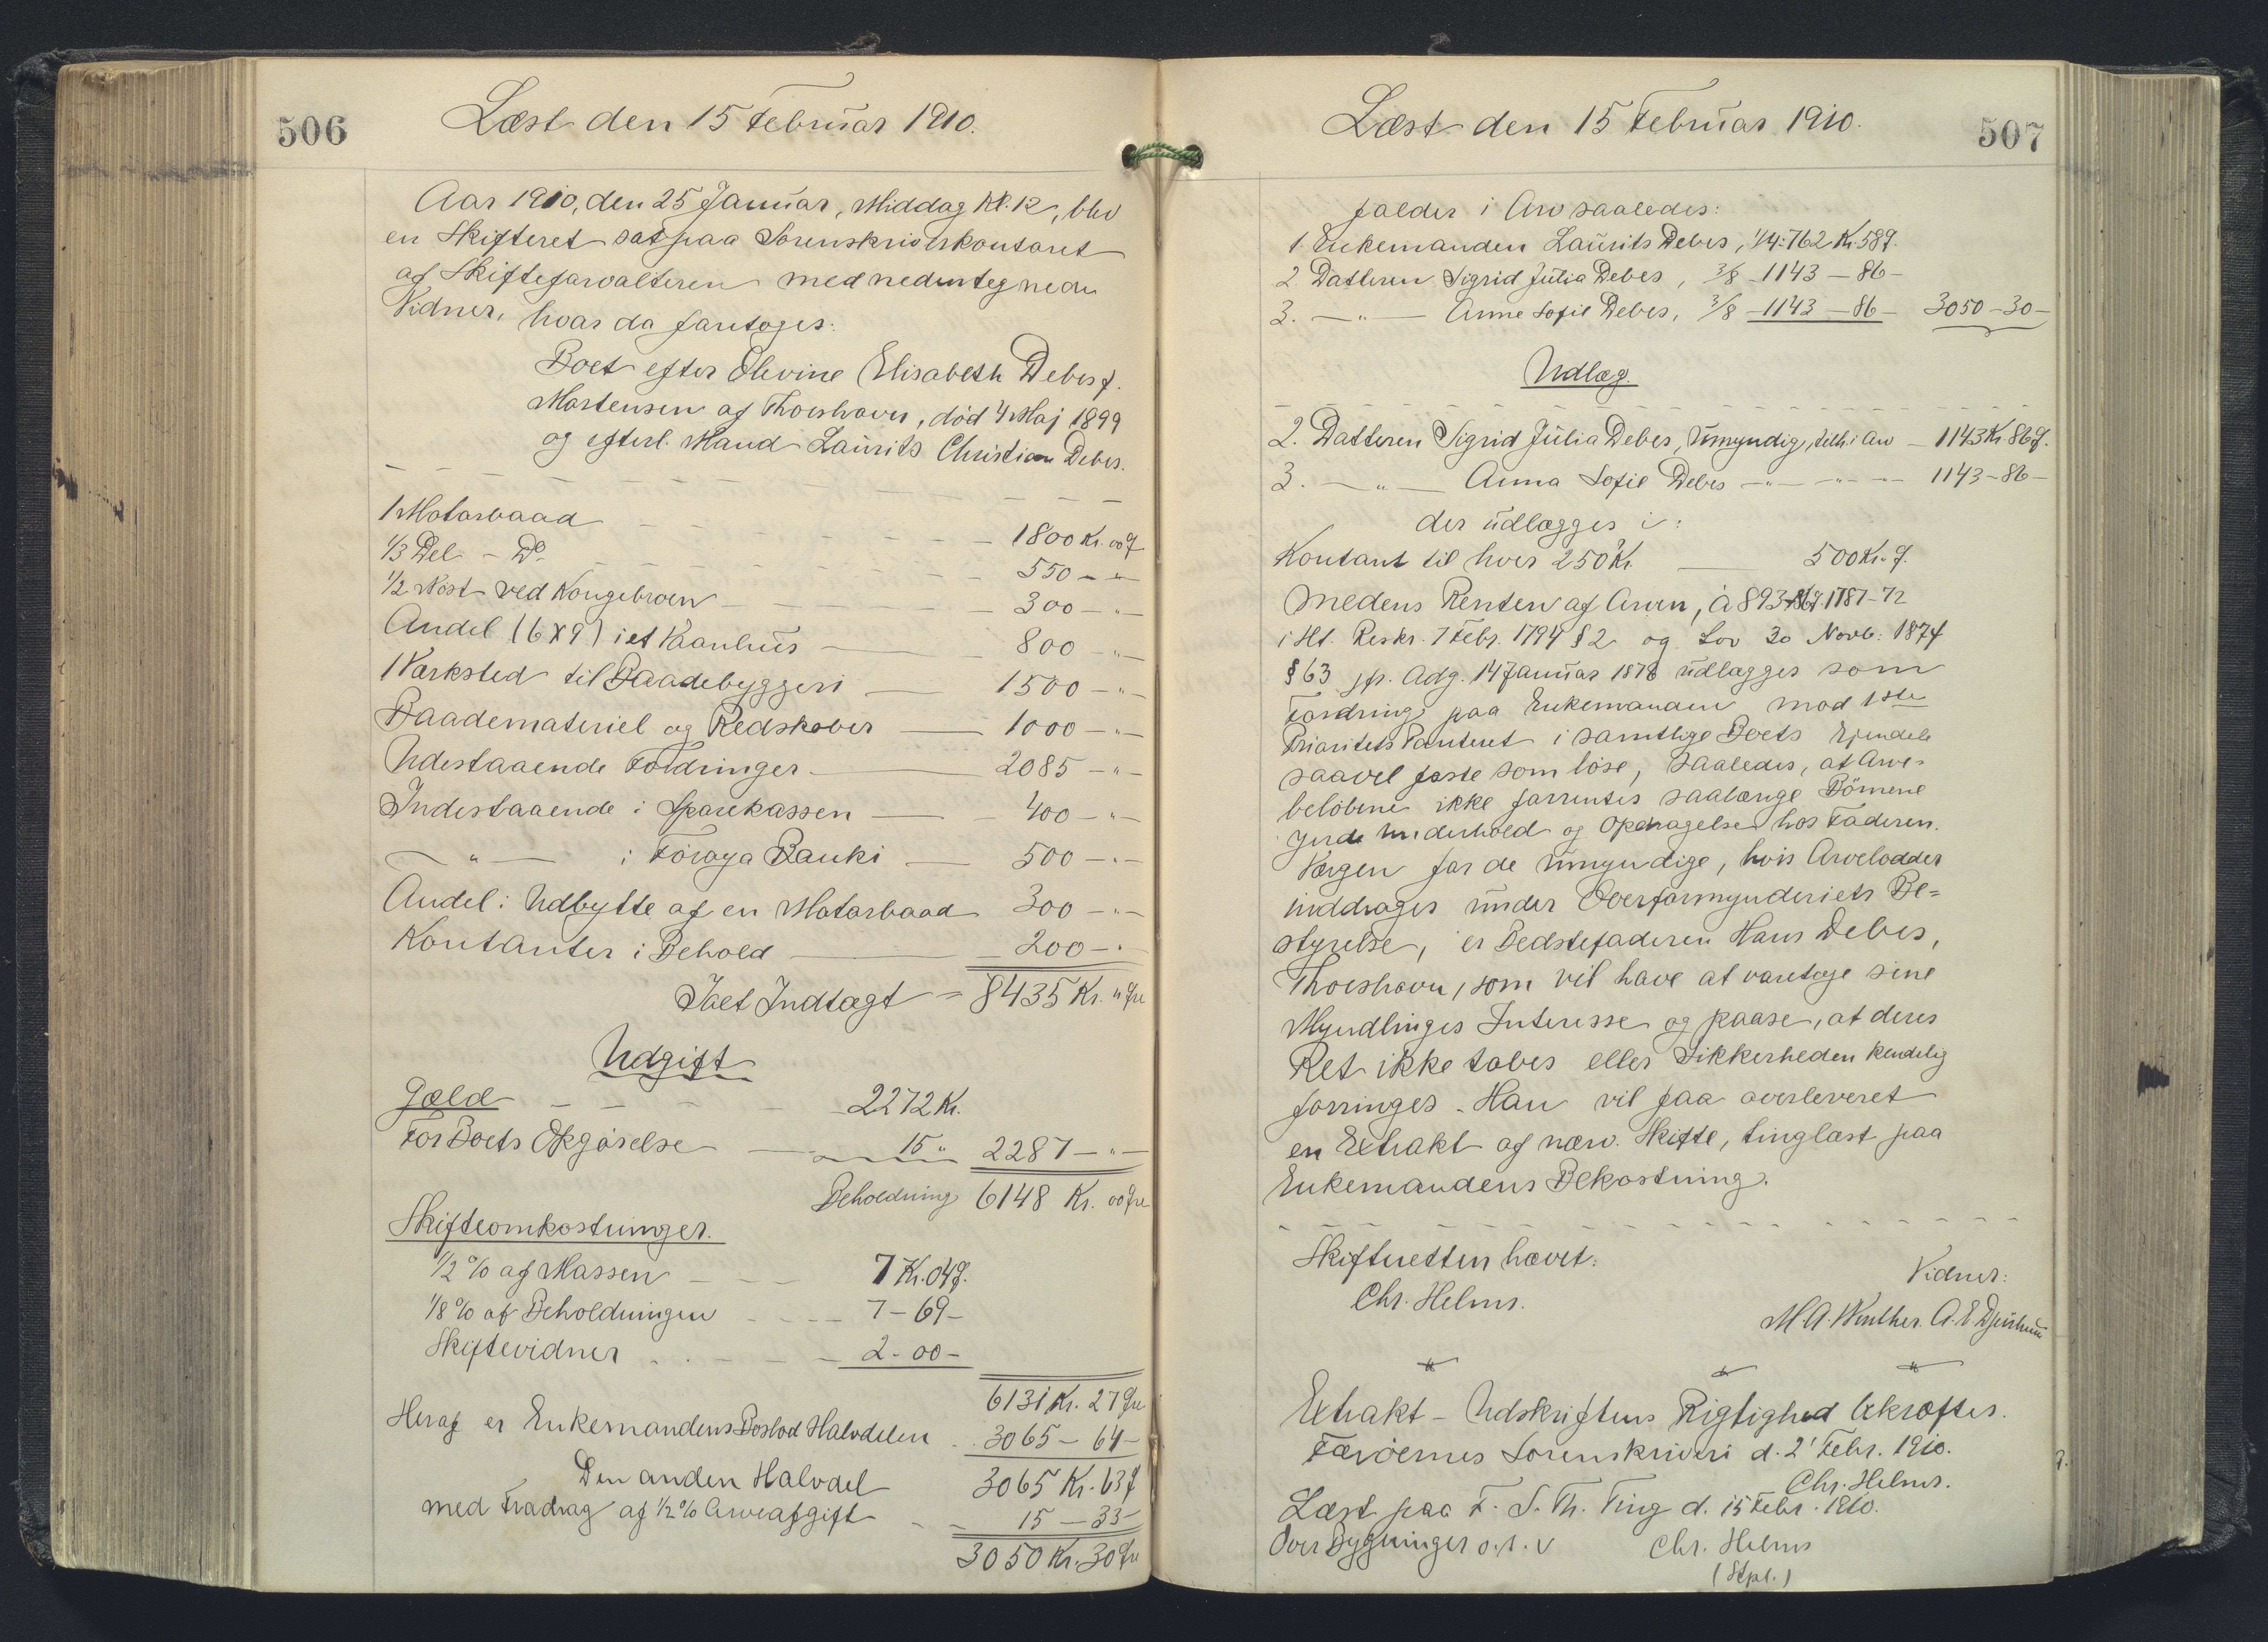 506
Læst den 15 Februar 1910.
Aar 1910, den 25 Januar, Middag Kl. 12, blev
en Skifteret sat paa Sorenskriverkontoret
af Skifteforvalteren med nedentegnede
Vidner, hvor da foretoges:
Boet efter Olevine Elisabeth Debes f.
Mortensen af Thorshavn, død 4 Maj 1899
og efterl. Mand Laurits Christian Debes.
1 Motorbaad 1800 Kr. 00 Ø
1/3 Del - Do 550 - " -
1/2 Nøst ved Kongebroen 300 - " -
Andel (6 x 9) i et Vaanhus 800 - " -
1 Værksted til Baadebyggeri 1500 - " -
Baademateriel og Redskaber 1000 - " -
Udestaaende Fordringer 2085 - " -
Indestaaende i Sparekassen 400 - " -
- " - i Föroya Banki 500 - " -
Andel i Udbytte af en Motorbaad 300 - " -
Kontanter i Behold 200 - "
Ialt Indtægt = 8435 Kr. " Øre
Udgift
Gæld 2272 Kr.
For Boets Opgørelse 15 " 2287 - " -
Beholdning 6148 Kr. 00 Øre
Skifteomkostninger.
1/2 % af Massen 7 Kr. 04 Ø.
1/8 % af Beholdningen 7 - 69 -
Skiftevidner 2 - 00 -
6131 Kr. 27 Øre
Heraf er Enkemandens Boslod Halvdelen 3065 - 64 -
Den anden Halvdel 3065 Kr. 63 Ø
med Fradrag af 1/2 % Arveafgift 15 - 33
3050 Kr. 30 Øre
Læst den 15 Februar 1910.
507
falder i Arv saaledes:
1. Enkemanden Laurits Debes, 1/4: 762 Kr. 58 Ø.
2 Datteren Sigrid Julia Debes, 3/8 1143 - 86 -
3. - " - Anne Sofie Debes, 3/8 - 1143 - 86 - 3050 - 30 -
Udlæg.
2. Datteren Sigrid Julia Debes, Umyndig, tilk. i Arv - 1143 Kr. 86 Ø.
3. - " - Anna Sofie Debes - " - " - 1143 - 86 -
der udlægges i:
Kontant til hver 250 Kr. 500 Kr. Ø.
medens Resten af Arven, à 893-86 Ø 1787-72
i Hl. Reskr. 7 Febr. 1794 § 2 og Lov 30 Novb. 1874
§ 63 jfr. Adg. 14 Januar 1876 udlægges som
Fordring paa Enkemanden mod 1ste
Prioritets Panteret i samtlige Boets Ejendele
saavel faste som løse, saaledes, at Arve-
beløbene ikke forrentes saalænge Börnene
nyde Underhold og Opdragelse hos Faderen.
Værgen for de umyndige, hvis Arvelodder
inddrages under Overformynderiets Be=
styrelse, er Bedstefaderen Hans Debes,
Thorshavn, som vil have at varetage sine
Myndlinges Interesse og paase, at deres
Ret ikke tabes eller Sikkerheden kendelig
forringes. Han vil faa overleveret
en Extrakt af nærv. Skifte, tinglæst paa
Enkemandens Bekostning.
Skifteretten hævet.
Chr. Helms.
Vidner:
M. A. Winther. A. E Djurhuus
Extrakt - Udskriftens Rigtighed bekræftes.
Færöernes Sorenskriveri d. 2' Febr. 1910.
Chr. Helms.
Læst paa F. S. Th. Ting d. 15 Febr. 1910.
Over Bygninger o. s. v
Chr. Helms
(Stpl.)